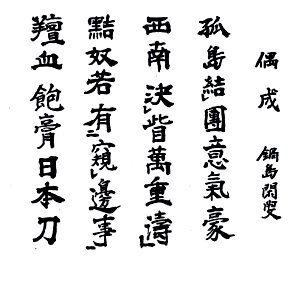 偶成 鍋島閑叟
孤島結レ團意氣豪
西南決レ眥萬重濤
黠奴若有下窺レ邊事上
羶血飽膏日本刀